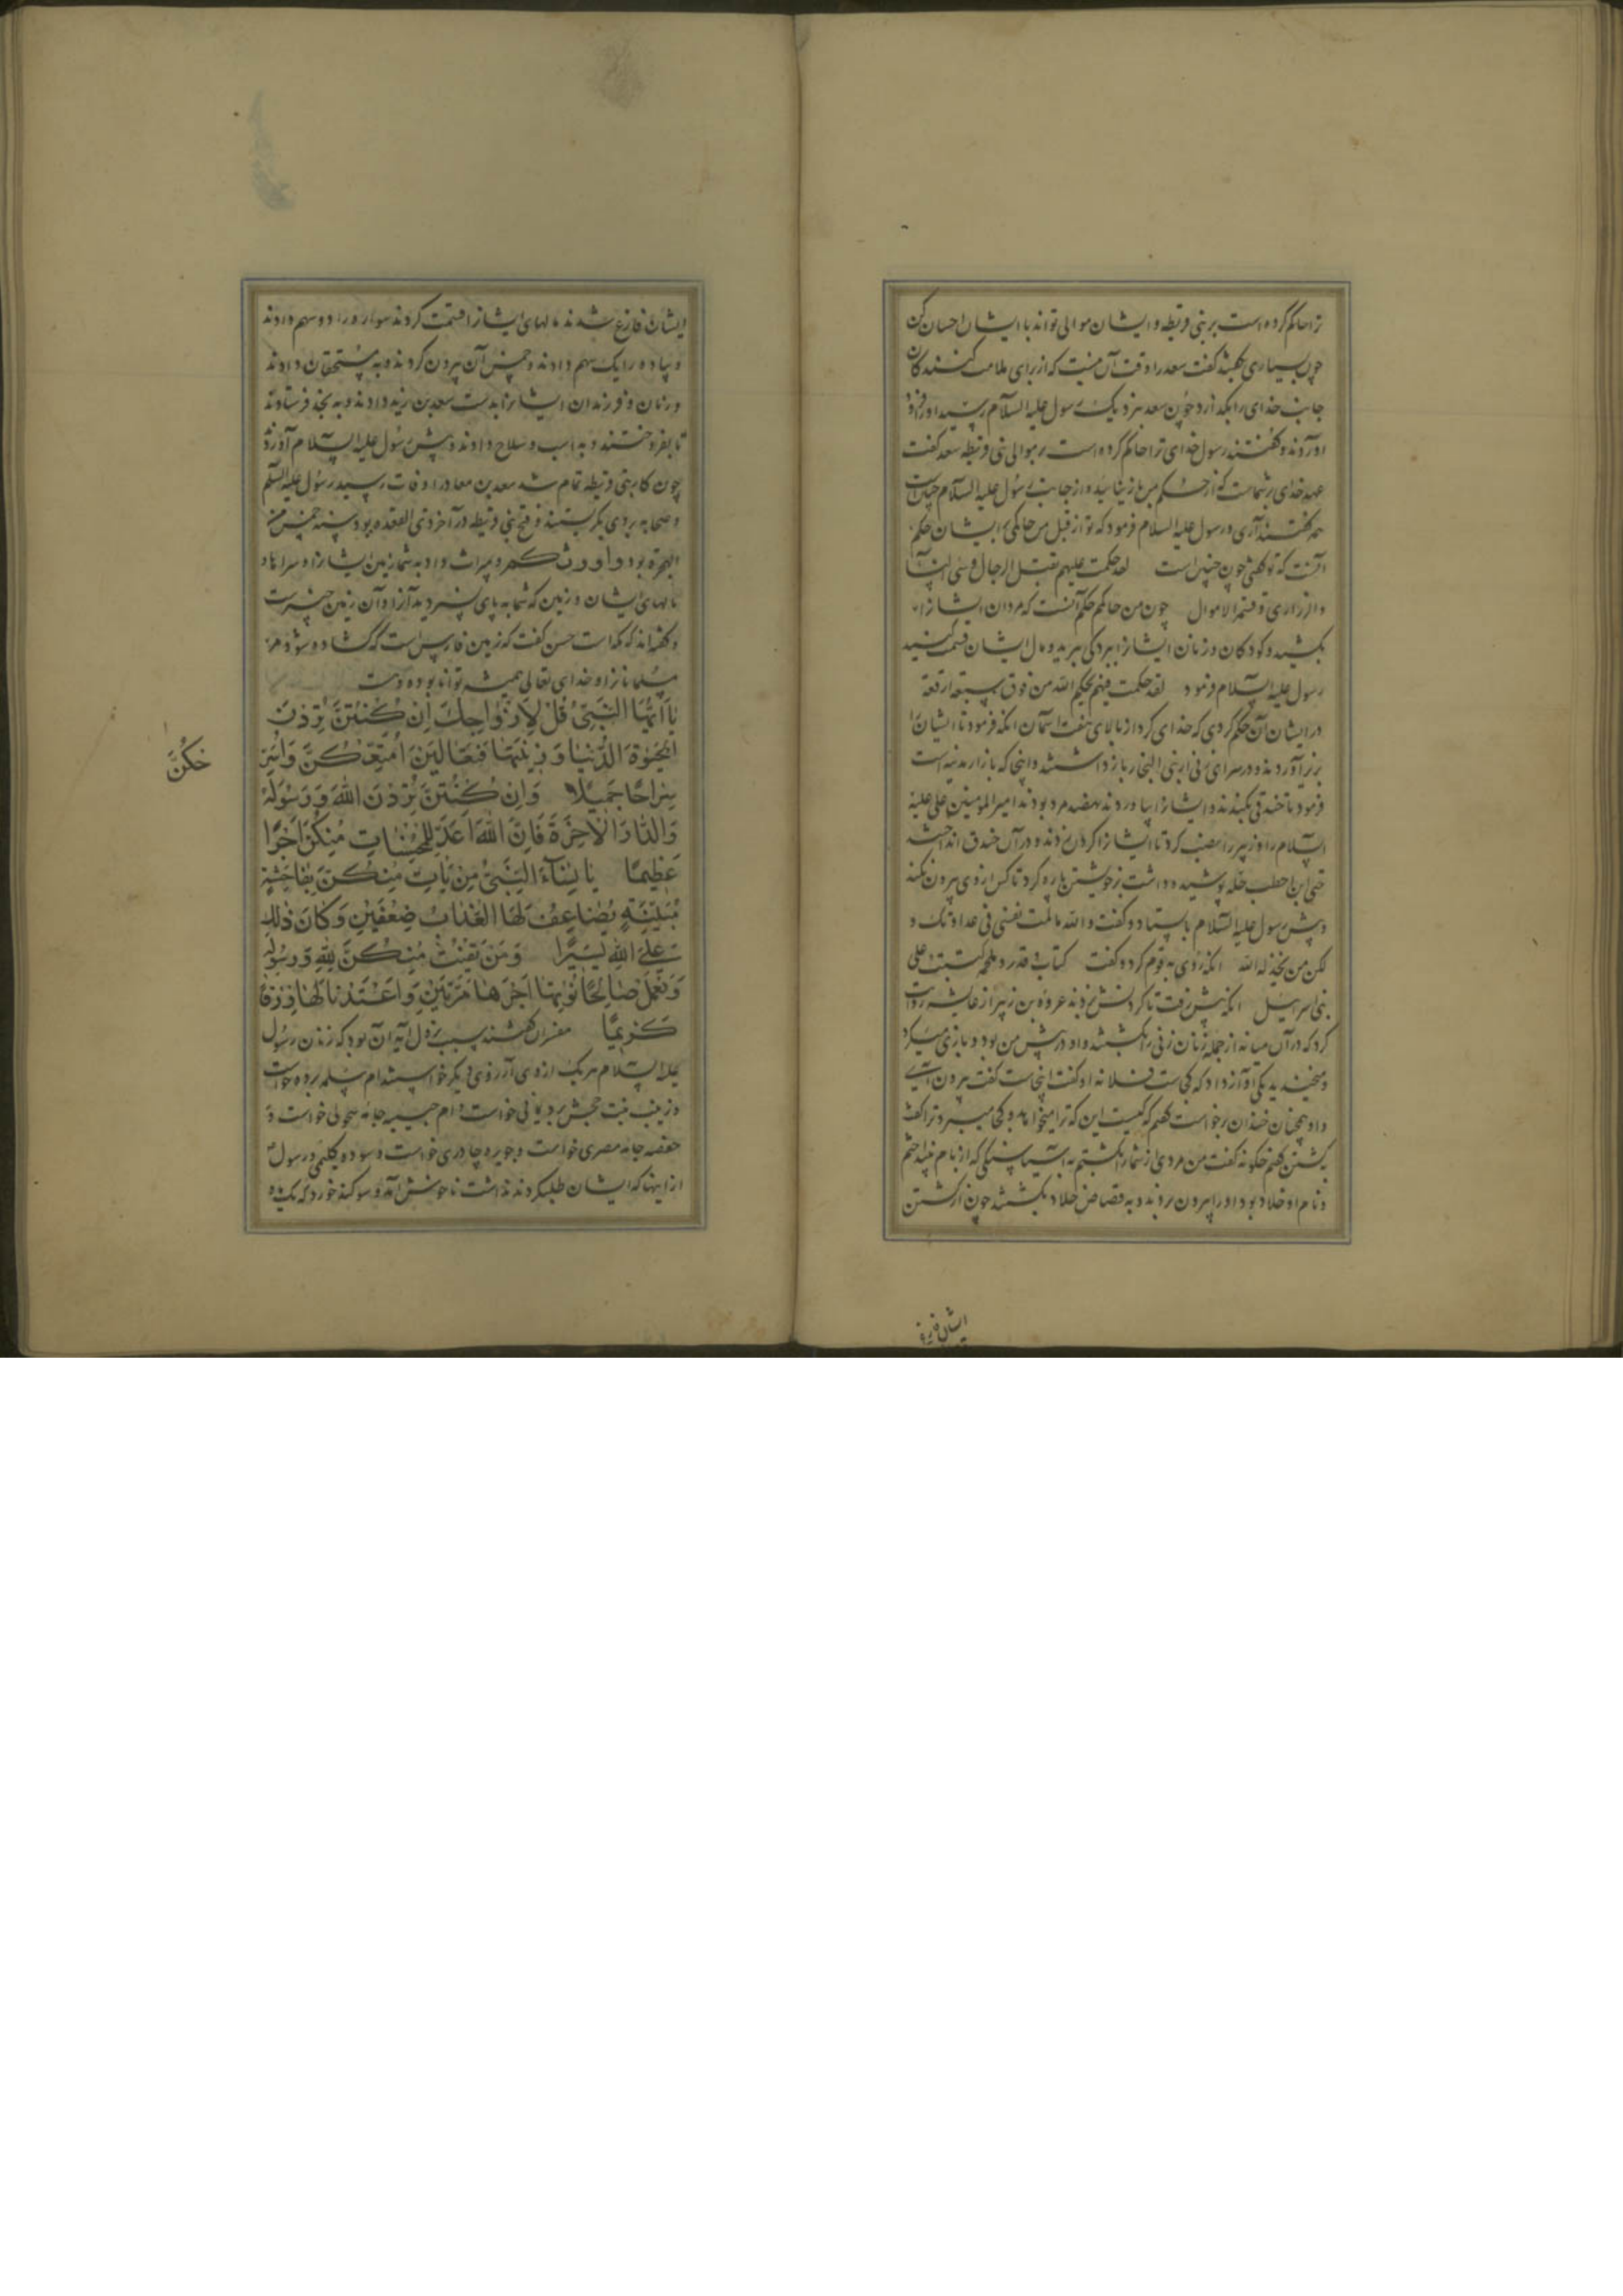 ترا حاکم کرده است بر بنی قریظه و ایشان موالی تواند با ایشان احسان کن
چون بسیاری بگفتند گفت سعد را وقت آن نیست که از برای ملامت کنندکان
جانب خدای را بگذارد چون سعد بنزدیک رسول علیه السلام رسید او را فرود
اوردند و گفتند رسول خدای ترا حاکم کرده است بر موالی بنی قریظه سعد گفت
عهد خدای بر شماست که از حکم من باز نیائید و از جانب رسول علیه السلام چنین است
همه گفتند آری و رسول علیه السلام فرمود که تو از قبل من حاکمی ایشان حکم
آنست که تو کنی چون چنین است لقد حکمت علیهم بقتل الرجال و سبی النساء
والذراری و قسمة الاموال چون من حاکمم حکم آنست که مردان ایشانرا
بکشید و کودکان و زنان ایشانرا ببردگی ببرید و مال ایشان قسمت کنید
رسول علیه السلام فرمود لقد حکمت فیهم بحکم الله من فوق سبعة ارقعة
در ایشان آن حکم کردی که خدای کرد از بالای هفت آسمان انکه فرمود تا ایشانرا
بزیر آوردند و در سرای زنی از بنی النجار باز داشتند و اینجا که بازار مدینه است
فرمود تا خندقی بکندند و ایشانرا بیاوردند نهصد مرد بودند امیر المؤمنین علی علیه
السلام را و زبیر را نصب کرد تا ایشانرا کردن زدند و در آن خندق انداخت
حی ابن احطب حله پوشیده داشت بر خویشتن پاره کرد تا کس از وی بیرون نکند
و پیش رسول علیه السلام بایستاد و گفت والله ما لمت نفسی فی عداوتک و
لکن من یخذله الله انکه روی به قوم کرد و گفت کتاب و قدر و ملحمة کتبت علی
بنی اسرائیل انکه پیش رفت تا کردنش بزدند عروة بن زبیر از عایشه روایت
کرد که در آن میانه از جمله زنان زنی را بکشتند و او در پیش من بود و بازی میکرد
و میخندید یکی آواز داد که کجاست فلانه او گفت اینجاست گفت بیرون آی
و او همچنان خندان برخواست گفتم که کیست این که ترا میخواند و کجا میبرد ترا گفت
به کشتن گفتم چگونه گفت من مردی از شما را بکشتم به آسیا سنگی که از بام بینداختم
و نام او خلاد بود او را بیرون بردند و به قصاص خلاد بکشتند چون از کشتن
ایشان فارغ
ایشان فارغ شدند مالهای ایشانرا قسمت کردند سوار و را دو سهم دادند
و پیاده را یک سهم دادند و خمس آن بیرون کردند و به مستحقان دادند
و زنان و فرزندان ایشانرا بدست سعد بن زید دادند و به نجد فرستادند
تا بفروختند و به اسب و سلاح دادند و پیش رسول علیه السلام آورد
چون کار بنی قریظه تمام شد سعد بن معاد را وفات رسید رسول علیه السلم
و صحابه بر وی بگریستند و فتح بنی قریظه در آخر ذی القعده بود سنه خمس من
الهجرة بود و اورثکم و میراث داد به شما زمین ایشانرا و سراها و
مالهای ایشان و زمین که شما به پای نسپردید آنرا و آن زمین خیبرست
و گفته‌اند که مکه است حسن گفت که زمین فارس است که گشاده شود مر
مسلمانانرا و خدای تعالی همیشه توانا بوده است
یا ایها النبی قل لازواجک ان کنتن تردن
الحیوة الدنیا و زینتها فتعالین امتعکن واسر
حکن
سراحا جمیلا وان کنتن تردن الله ورسوله
والدار الاخرة فان الله اعد للمحسنات منکن اجرا
عظیما یا نساء النبی من یات منکن بفاحشة
مبینة یضاعف لها العذاب ضعفین وکان ذلک
علی الله یسیرا ومن یقنت منکن لله ورسوله
وتعمل صالحا نؤتها اجرها مرتین واعتدنا لها رزقا
کریما مفسران گفتند سبب نزول آیه آن بود که زنان رسول
علیه السلام هر یک از وی آرزوی دیگر خواستند ام سلمه برده خواست
و زینب بنت جحش برد یمانی خواست و ام حبیبه جامه سحولی خواست و
حفصه جامه مصری خواست و جویره چادری خواست و سوده گلیمی و رسول
از اینها که ایشان طلب کردند نداشت ناخوش آمد و سوگند خورد که یک ماه